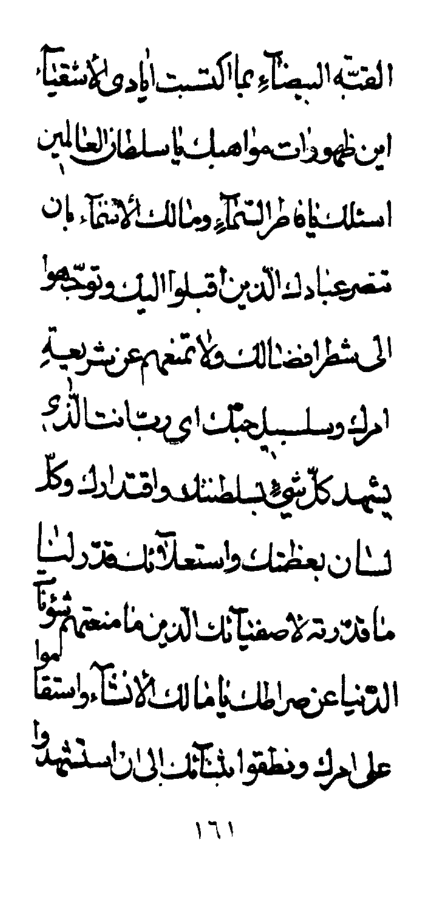 القبّه البيضآء بما اكتسبت ايادى الأشقيآء
اين ظهورات مواهبك يا سلطان العالمين
اسئلك يا فاطر السّمآء و مالك الأسمآء بان
تنصر عبادك الّذين اقبلوا اليك و توجّهوا
الى شطر افضالك و لا تمنعهم عن شريعة
امرك و سلسبيل حبّك اى ربّ انت الّذى
يشهد كلّ شىء بسلطنتك و اقتدارك و كلّ
لسان بعظمتك و استعلائك قدّر لنا
ما قدّرته لأصفيآئك الّذين ما منعتهم شئونات
الدّنيا عن صراطك يا مالك الأنشآء و استقاموا
على امرك و نطقوا بثنآئك الى ان استشهدوا
١٦١